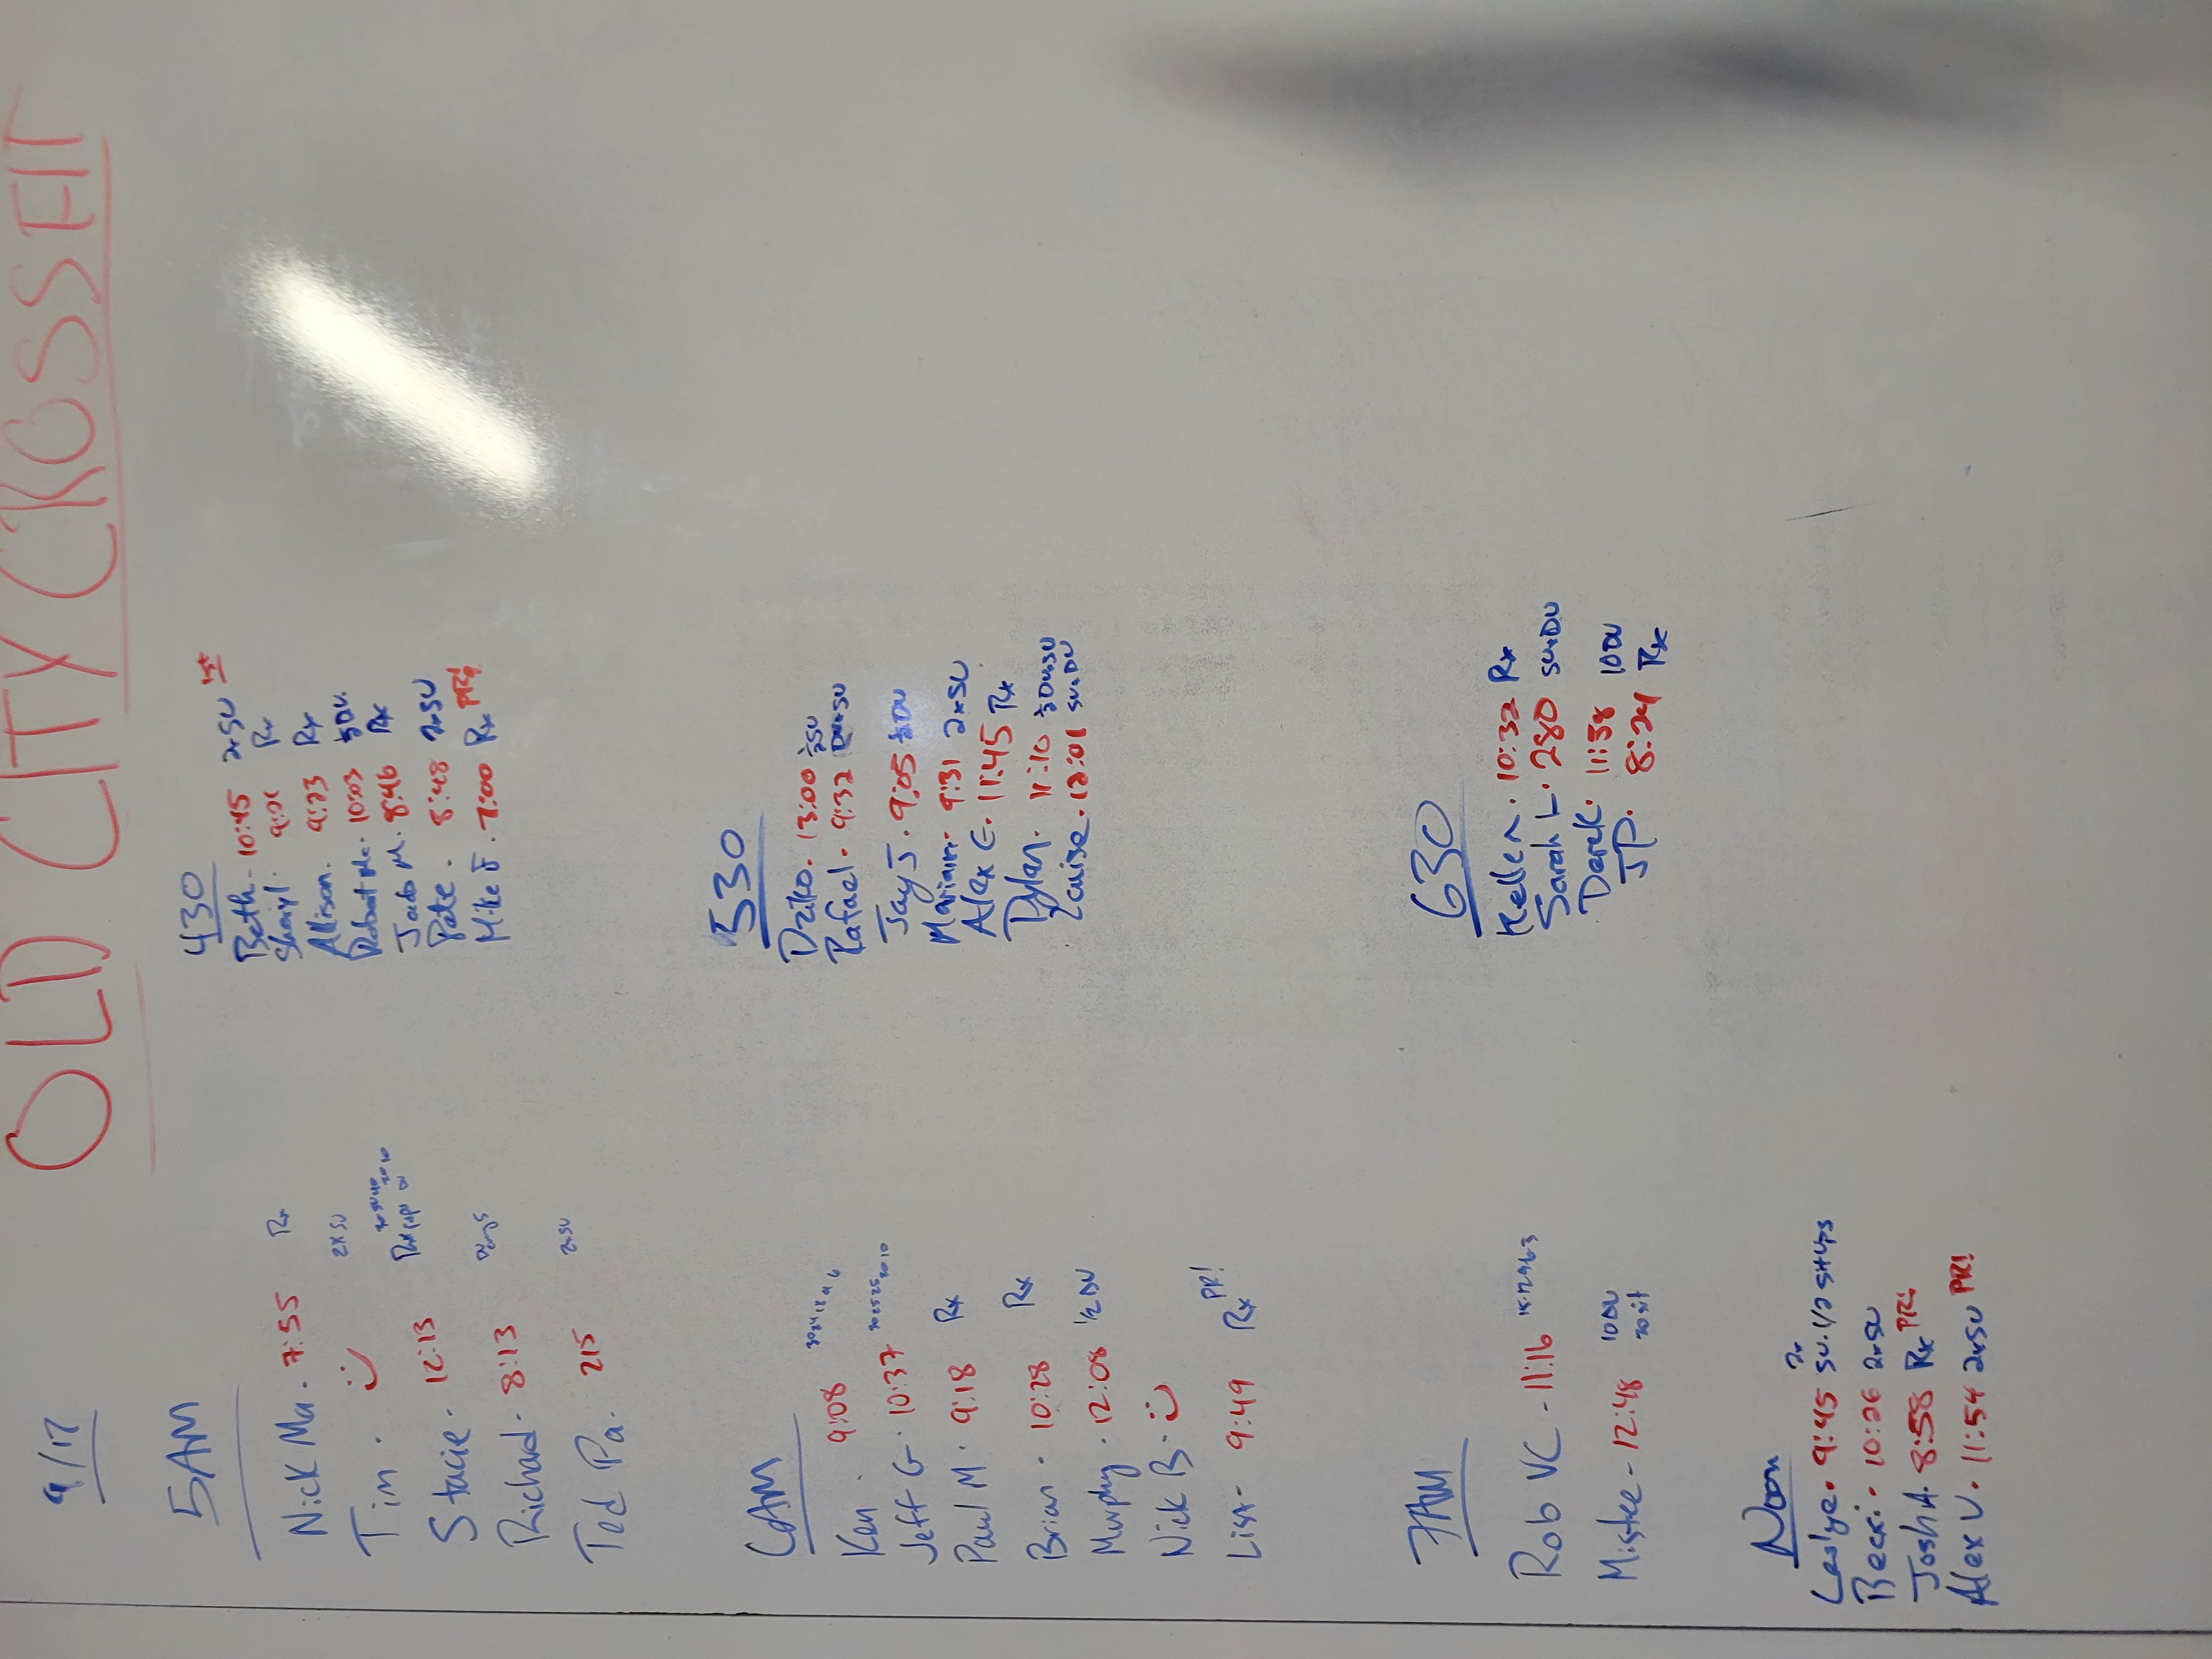 OLD CITY CROSSFIT
9/17
5AM
Nick Ma. 7:55 Rx
Tim. :) 2xSU
Stacie. 12:13
Richard. 8:13
Ted Pa. 215 2xSU
6AM
Ken. 9:08
Jeff G. 10:37
Paul M. 9:18 Rx
Brian. 10:28 Rx
Murphy. 12:08 1/2 DU
Nick B. :)
Lisa- 9:49 Rx PR!
7AM
Rob VC - 11:16 15 12 9 6 3
Mistee - 12:48 10 DU
Noon
Leslye. 9:45 2x SU. 1/2 situps
Becki. 10:26 2xSU
Josh A. 8:58 Rx PR!
Alex V. 11:54 2xSU PR!
430
Beth - 10:45 2xSU 1st
Sheryl. Rx
Allison. 9:23 Rx
Robert Mc. 10:03 DU
Jado M. 8:46 Rx
Pete. 8:48 2xSU
Mike J. 7:00 Rx PR!
530
Dziko. 13:00
Rafael. 9:32
Jay J. 9:05 DU
Marianne. 9:31 2xSU
Alex E. 11:45 Rx
Dylan. 11:10
Louise. 12:01 SU+DU
630
Kellen. 10:32 Rx
Sarah L. 280 SU+DU
Derek. 11:38 10 DU
JP. 8:24 Rx